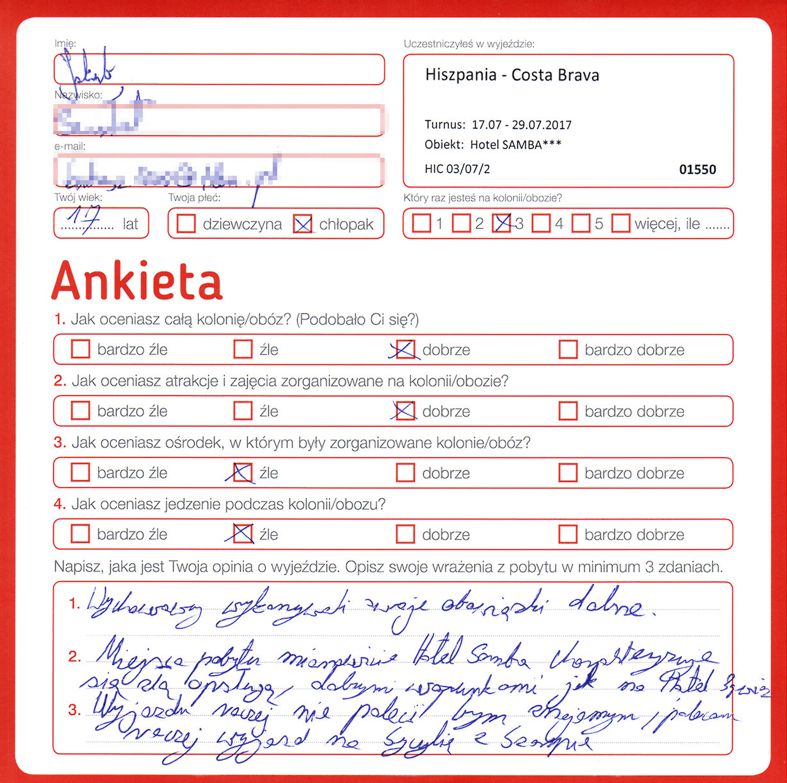 Imię:
Jakub
Uczestniczyłeś w wyjeździe:
Hiszpania - Costa Brava
Nazwisko:
Turnus: 17.07 - 29.07.2017
Obiekt: Hotel SAMBA***
e-mail:
HIC 03/07/2 01550
Twój wiek: Twoja płeć: Który raz jesteś na kolonii/obozie?
17 lat dziewczyna chłopak 1 2 3 4 5 więcej, ile .......
Ankieta
1. Jak oceniasz całą kolonię/obóz? (Podobało Ci się?)
bardzo źle źle dobrze bardzo dobrze
2. Jak oceniasz atrakcje i zajęcia zorganizowane na kolonii/obozie?
bardzo źle źle dobrze bardzo dobrze
3. Jak oceniasz ośrodek, w którym były zorganizowane kolonie/obóz?
bardzo źle źle dobrze bardzo dobrze
4. Jak oceniasz jedzenie podczas kolonii/obozu?
bardzo źle źle dobrze bardzo dobrze
Napisz, jaka jest Twoja opinia o wyjeździe. Opisz swoje wrażenia z pobytu w minimum 3 zdaniach.
1. Wychowawcy wykonywali swoje obowiązki dobrze.
2. Miejsce pobytu mianowicie Hotel Samba
się złą obsługą, dobrymi warunkami jak na Hotel
3. Wyjazdu raczej nie polecił bym znajomym, polecam
raczej wyjazd na Sycylię z